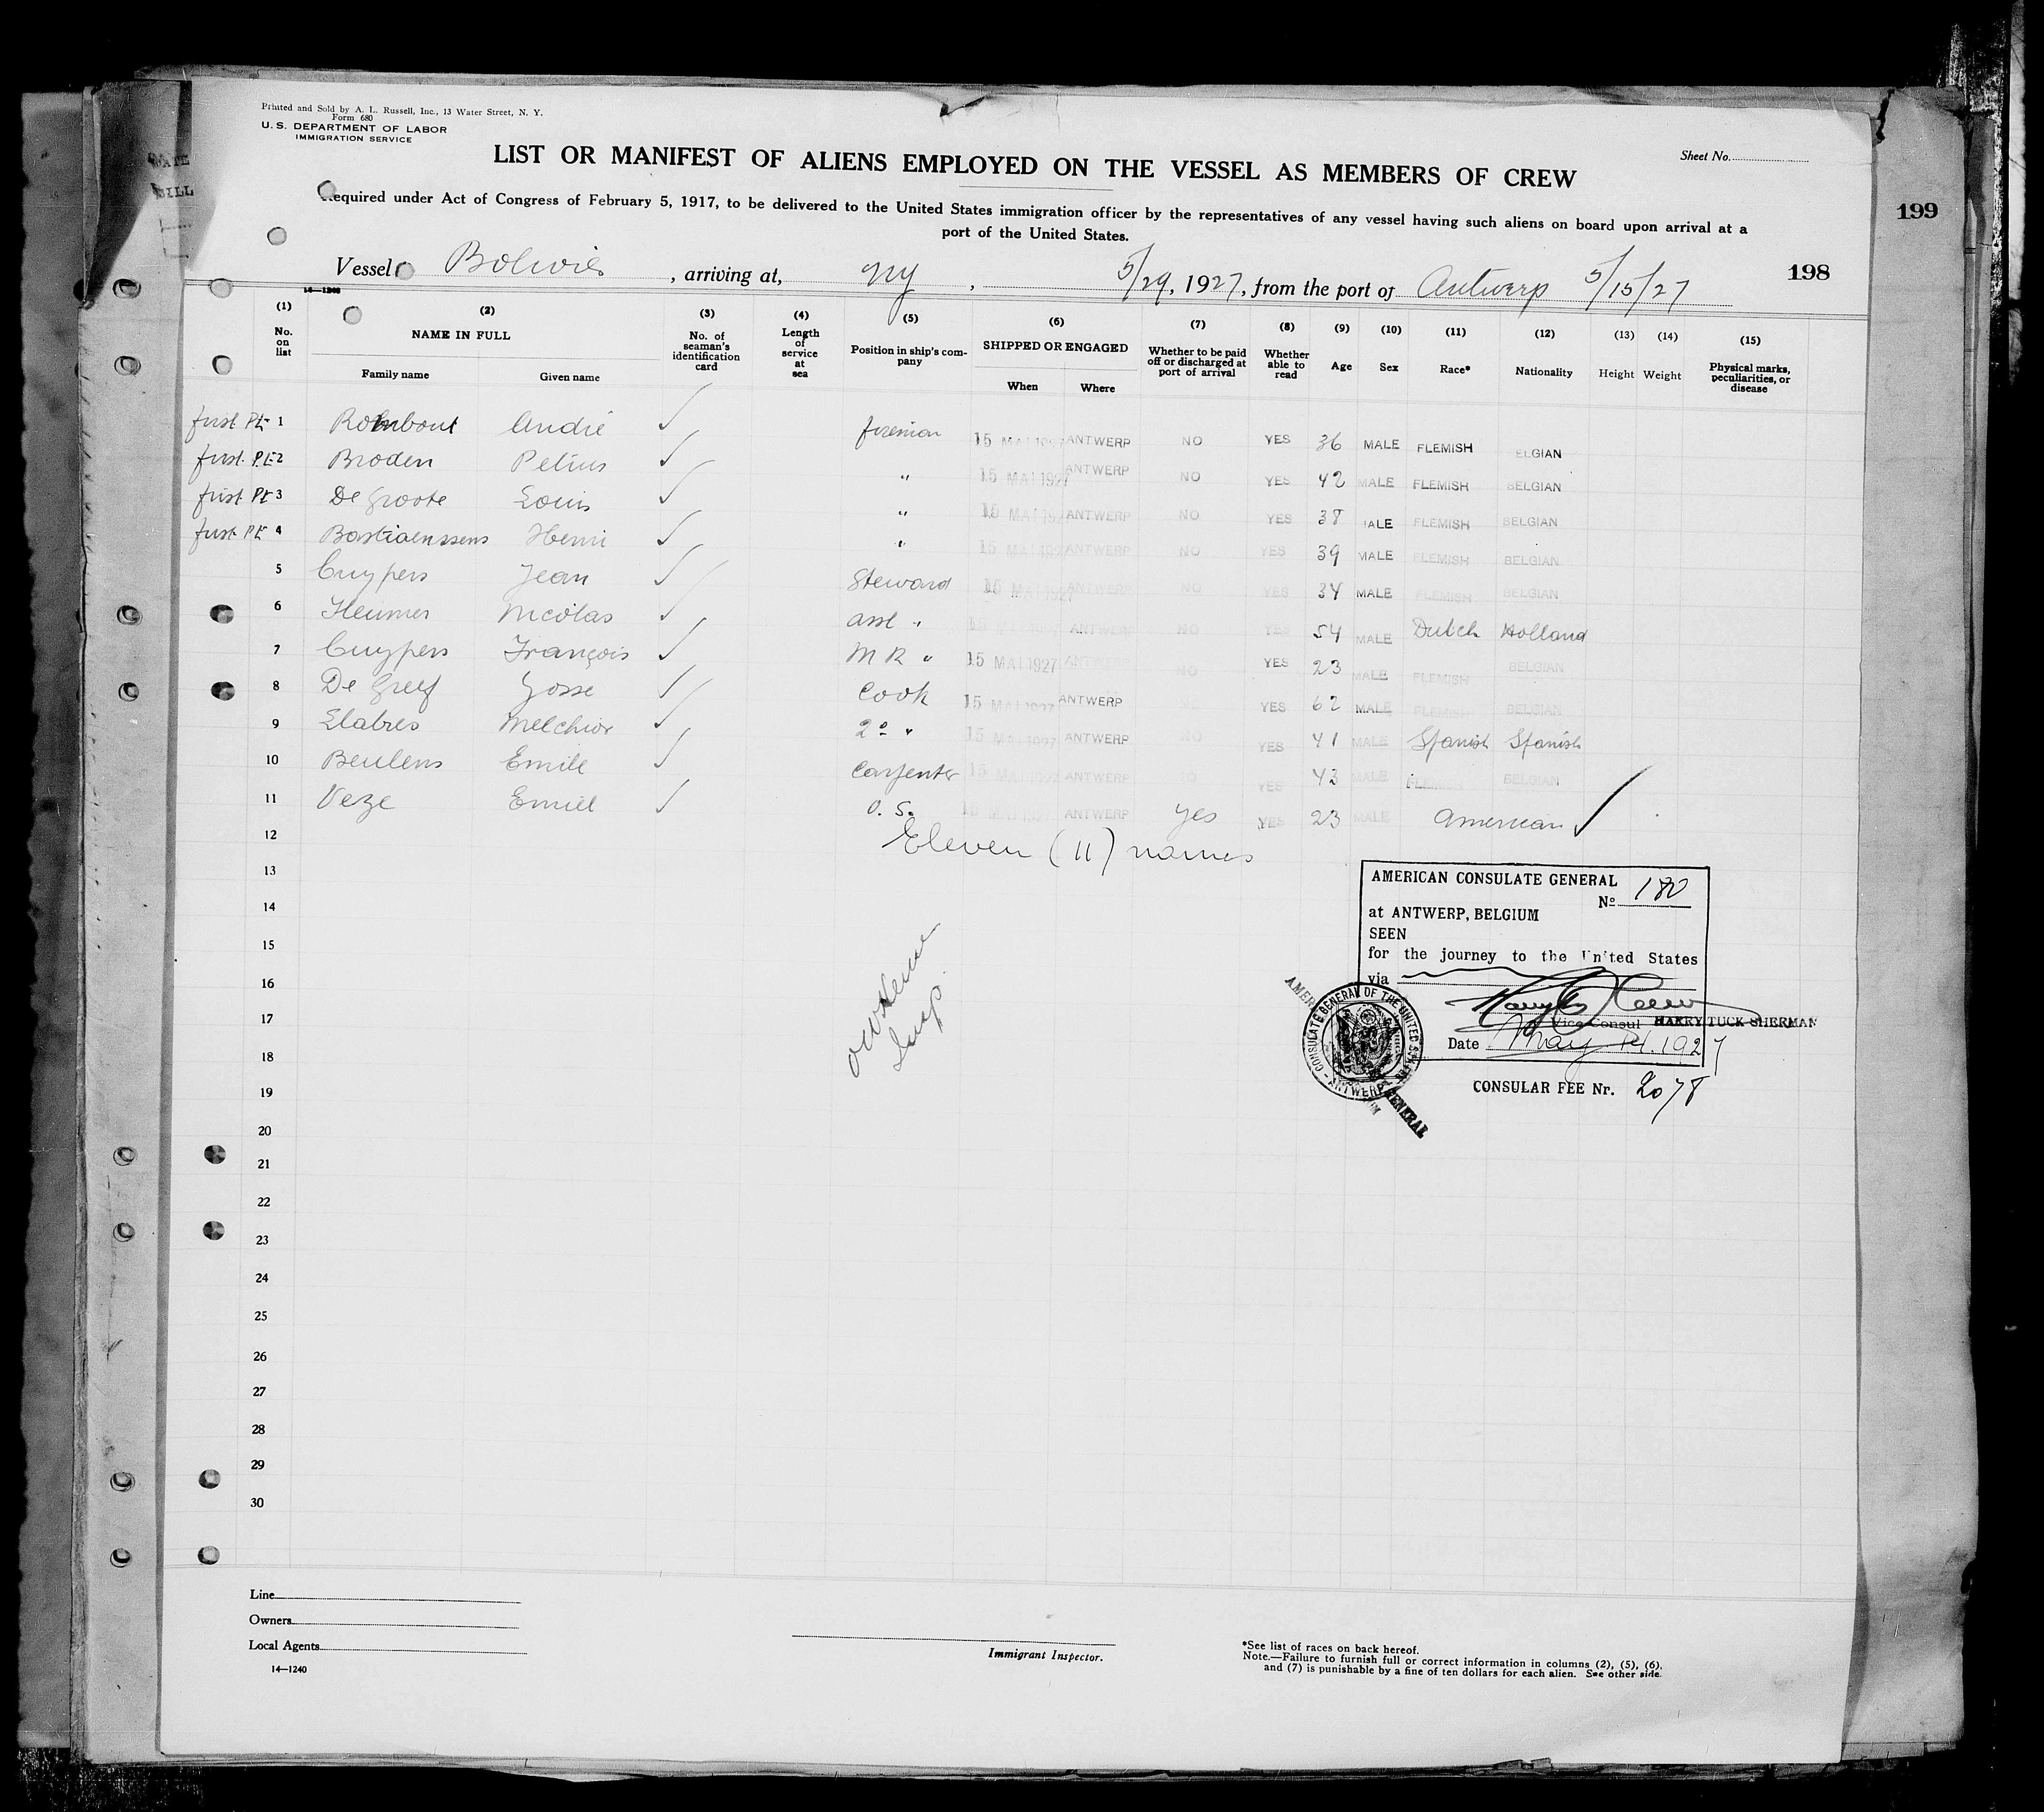 Printed and Sold by A. L. Russell, Inc., 13 Water Street, N. Y.
Form 680
U. S. DEPARTMENT OF LABOR
IMMIGRATION SERVICE
Sheet No.
LIST OR MANIFEST OF ALIENS EMPLOYED ON THE VESSEL AS MEMBERS OF CREW
Required under Act of Congress of February 5, 1917, to be delivered to the United States immigration officer by the representatives of any vessel having such aliens on board upon arrival at a
port of the United States.
199
198
Vessel Bolivier, arriving at, NY, 5/29, 1927, from the port of Antwerp 5/15/27
14—1240
(1) No. on list (2) NAME IN FULL Family name Given name (3) No. of seaman's identification card (4) Length of service at sea (5) Position in ship's company (6) SHIPPED OR ENGAGED When Where (7) Whether to be paid off or discharged at port of arrival (8) Whether able to read (9) Age (10) Sex (11) Race* (12) Nationality (13) Height (14) Weight (15) Physical marks, peculiarities, or disease
first PE 1 Rombout André ✓ fireman 15 MAI 1927 ANTWERP NO YES 36 MALE FLEMISH ELGIAN
first PE 2 Broden Petius ✓ " 15 MAI 1927 ANTWERP NO YES 42 MALE FLEMISH BELGIAN
first PE 3 De Groote Louis ✓ " 15 MAI 1927 ANTWERP NO YES 38 MALE FLEMISH BELGIAN
first PE 4 Bastiaenssens Henri ✓ " 15 MAI 1927 ANTWERP NO YES 39 MALE FLEMISH BELGIAN
5 Cuypers Jean ✓ Steward 15 MAI 1927 ANTWERP NO YES 34 MALE FLEMISH BELGIAN
6 Heumer Nicolas ✓ asst " 15 MAI 1927 ANTWERP NO YES 54 MALE Dutch Holland
7 Cuypers François ✓ M R " 15 MAI 1927 ANTWERP NO YES 23 MALE FLEMISH BELGIAN
8 De Greef Josse ✓ Cook 15 MAI 1927 ANTWERP NO YES 62 MALE FLEMISH BELGIAN
9 Llabres Melchior ✓ 2º " 15 MAI 1927 ANTWERP NO YES 41 MALE Spanish Spanish
10 Beulens Emile ✓ Carpenter 15 MAI 1927 ANTWERP NO YES 43 MALE FLEMISH BELGIAN
11 Veze Emiel ✓ O. S. 15 MAI 1927 ANTWERP yes YES 23 MALE American ✓
12 Eleven (11) names
13
14
15
16
17
18
19
20
21
22
23
24
25
26
27
28
29
30
Insp.
AMERICAN CONSULATE GENERAL
No 180
at ANTWERP, BELGIUM
SEEN
for the journey to the United States
via
Vice Consul HARRY TUCK SHERMAN
Date May 14. 1927
CONSULAR FEE Nr. 2078
CONSULATE GENERAL OF THE UNITED STATES - ANTWERP
Line
Owners
Local Agents
14—1240
Immigrant Inspector.
*See list of races on back hereof.
Note.—Failure to furnish full or correct information in columns (2), (5), (6),
and (7) is punishable by a fine of ten dollars for each alien. See other side.